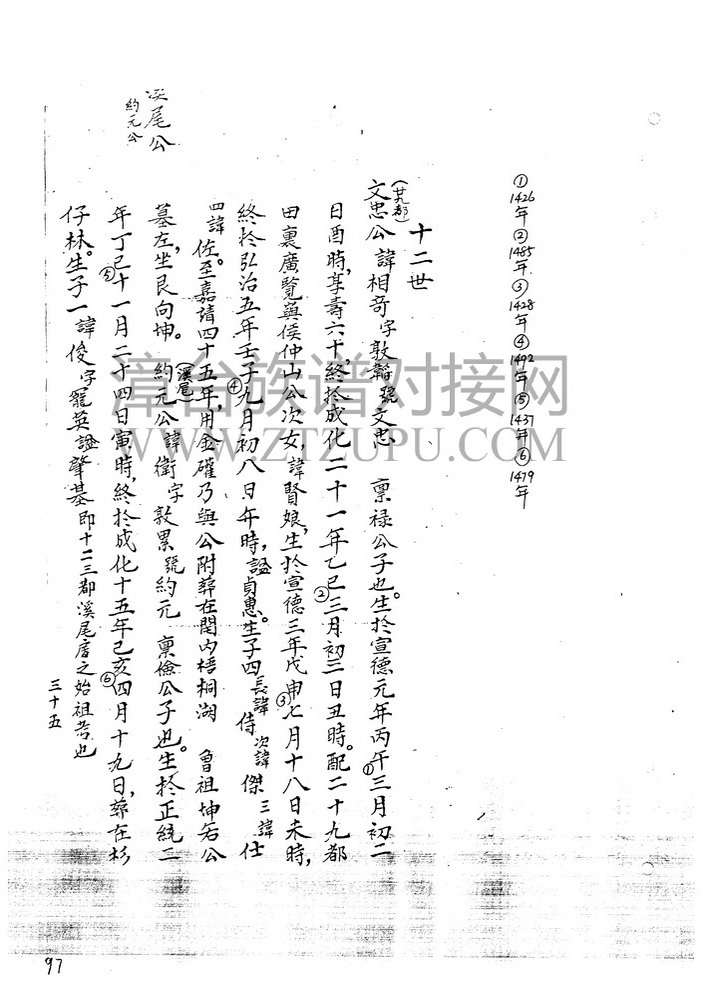 ①1426年②1485年③1428年④1492年⑤1437年⑥1479年
十二世
(廿九都)
文忠公諱相奇字敦韜號文忠 稟祿公子也。生於宣德元年丙午①三月初二
日酉時,享壽六十,終於成化二十一年乙巳②三月初三日丑時。配二十九都
田裏廣覽與侯仲山公次女,諱賢娘,生於宣德三年戊申③七月十八日未時,
終於弘治五年壬子④九月初八日午時,謚貞惠。生子四長諱侍次諱傑三諱仕
四諱佐。至嘉靖四十五年,用金礶乃與公附葬在閣内梧桐湖 魯祖坤岩公
墓左,坐艮向坤。(溪尾)約元公諱衛字敦累號約元 稟儉公子也。生於正統二
年丁巳⑤十一月二十四日寅時,終於成化十五年己亥⑥四月十九日,葬在杉
仔林。生子一諱俊字寵英謚肇基即十二三都溪尾房之始祖考也
三十五
溪尾公
約元公
漳台族谱对接网
WWW.ZTZUPU.COM
97